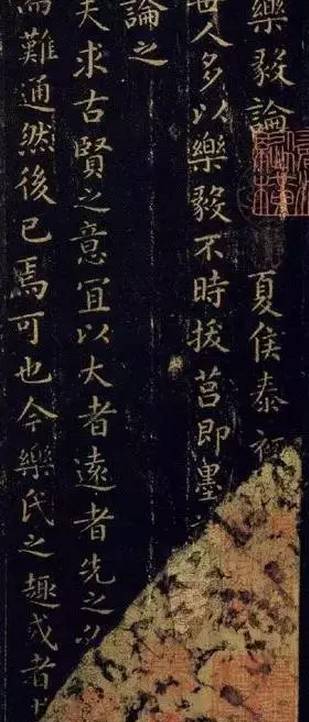 樂毅論 夏侯泰
世人多以樂毅不時拔莒即墨
論之
夫求古賢之意宜以大者遠者先之必
難通然後已焉可也今樂氏之趣或者